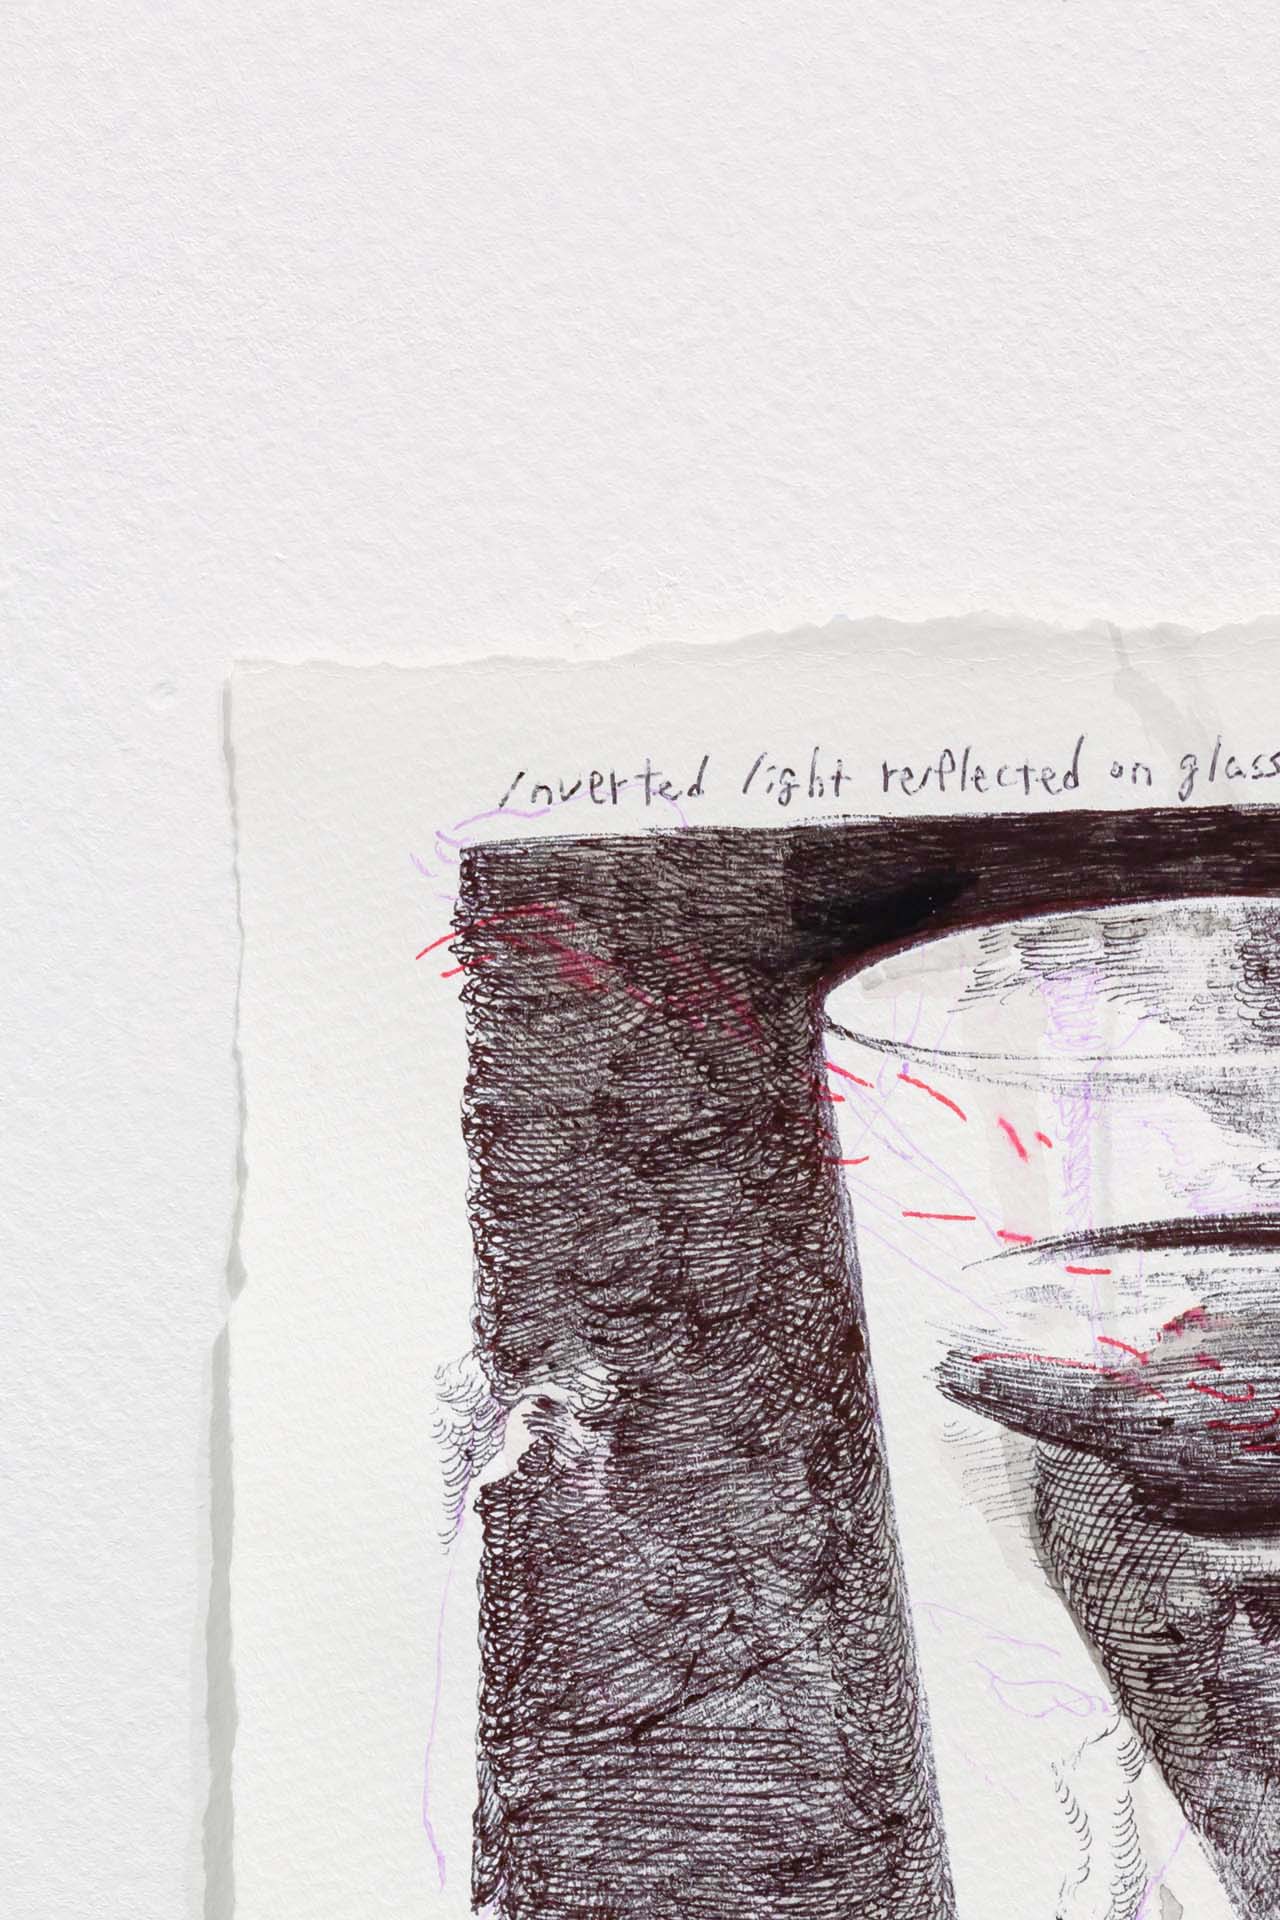 inverted light reflected on glass